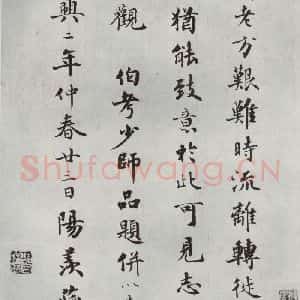 老方艱難時流離轉徙
猶能致意於此可見志
觀 伯考少師品題併以
興二年仲春廿三日陽羨蔣
Shufawang.CN